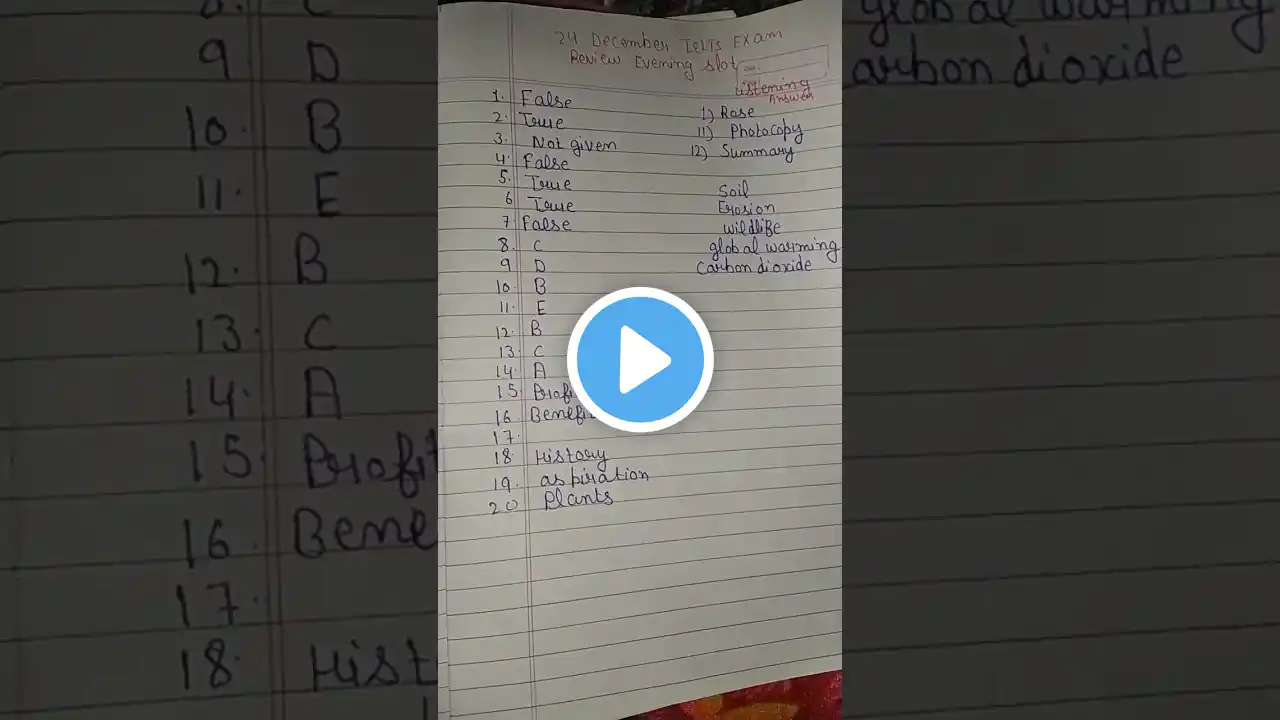 24 December IELTS EXAM
Review Evening slot
Listening
Answer
1. False
2. True
3. Not given
4. False
5. True
6 True
7 False
8. C
9 D
10. B
11. E
12. B
13. C
14. A
15.
16. Benefi
17.
18 History
19. aspiration
20 Plants
1) Rose
11) Photocopy
12) Summary
Soil
Erosion
wildlife
global warming
Carbon dioxide
8. C
9 D
10. B
11. E
12. B
13. C
14. A
15. Profit
16. Bene
17.
18. Hist
global warming
arbon dioxide